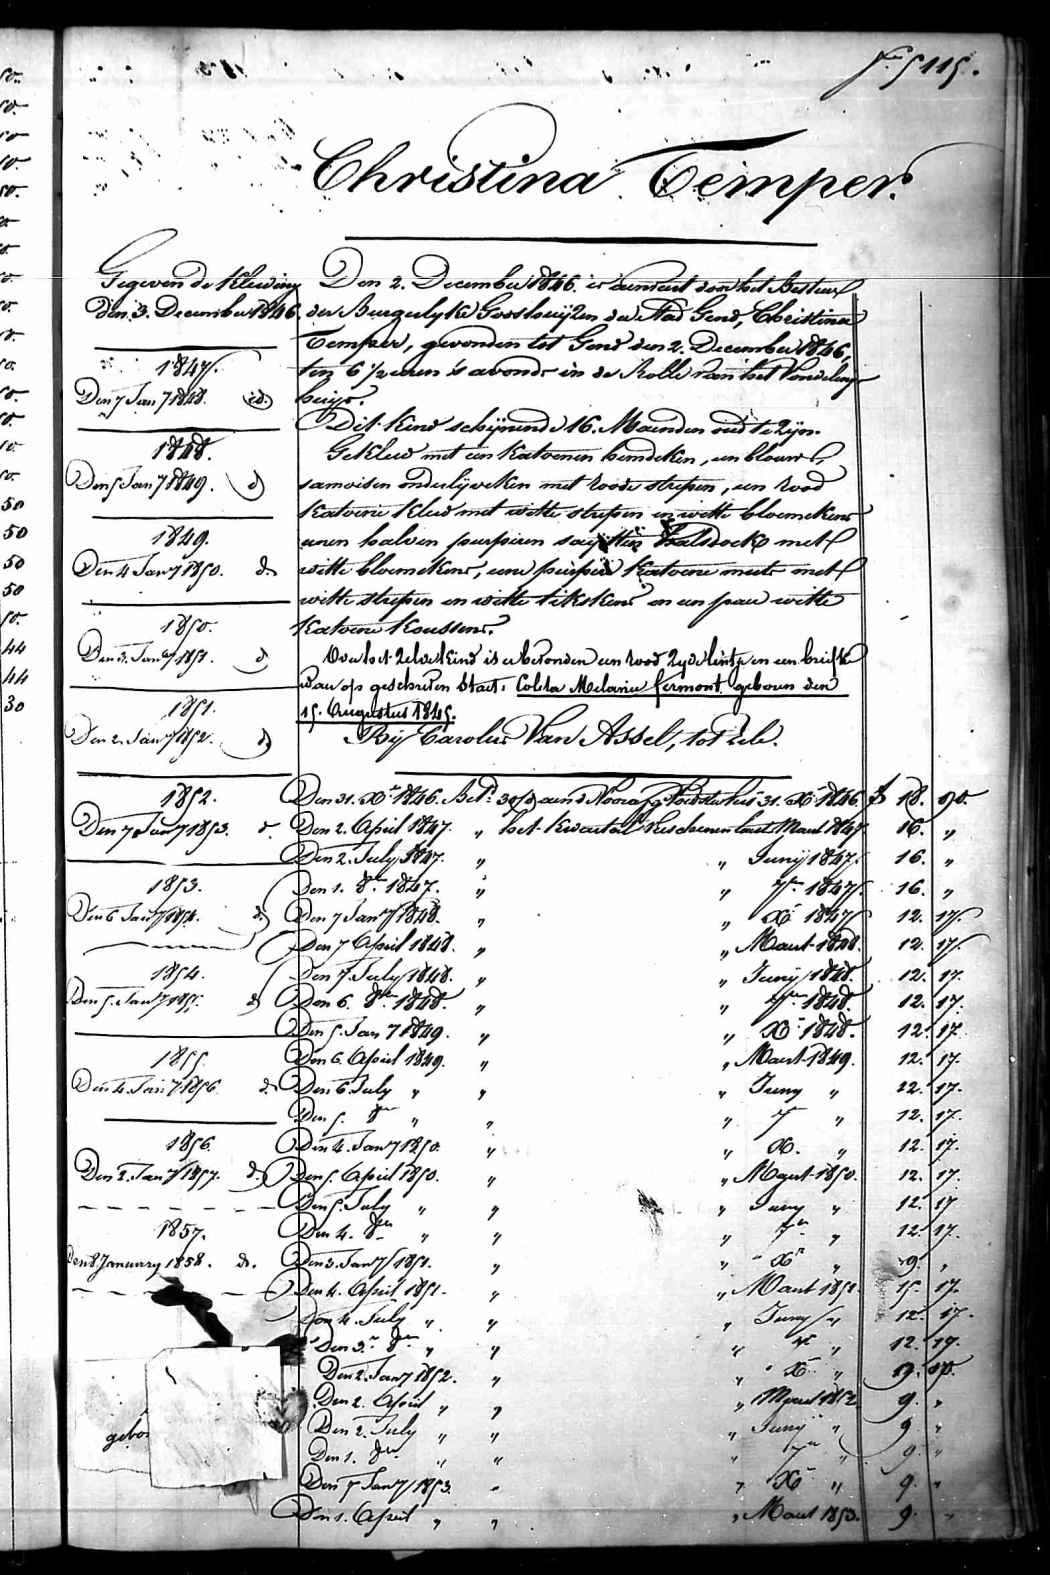 f.° 5115.
Christina Temper.
Gegeven de Kleeding
den 3. December 1846.
1847.
Den 7 Jany 1848. id.
1848.
Den 5 Jany 1849. d
1849.
Den 4 Jany 1850. d.
1850.
Den 3. Jany 1851. d
1851.
Den 2. Jany 1852. d
1852.
Den 7 Jany 1853. d.
1853.
Den 6 Jany 1854. d
1854.
Den 5. Jany 1855. d
1855
Den 4. Jany 1856. d.
1856.
Den 2. Jany 1857. d.
1857.
Den 8 January 1858. d.
Den 2. December 1846. is aenveert door het Bestier
der Burgerlyke Godshuyzen der Stad Gend, Christina
Temper, gevonden tot Gend den 2. December 1846,
ten 6 ½ uren 's avonds in de Rolle van het Vondeling-
huys.
Dit kind schynende 16. Maenden oud te zyn.
Gekleed met een katoenen hemdeken, een blauw
onderlyveken met roode strepen, een rood
katoene kleed met witte strepen en witte bloemekens
eenen halven purpuren halsdoek met
witte bloemekens, eene purpere katoene muts met
witte strepen en witte tikskens en een paer witte
katoene koussens.
Over het zelve kind is er bevonden een rood zyde lintje en een briefke
waer op geschreven staet: Coleta Melanie fermont geboren den
15. Augustus 1845.
By Carolus Van Assel, tot Zele.
Den 31. Xr 1846. 31. Xr 1846 18. 90.
Den 2. April 1847. " het kwartael verschenen laest Maert 1847. 16. "
Den 2. July 1847. " " Juny 1847. 16. "
Den 1. 8er 1847. " " 7er 1847. 16. "
Den 7 Jany 1848. " " Xr 1847 12. 17.
Den 7 April 1848. " " Maert 1848. 12. 17.
Den 7. July 1848. " " Juny 1848. 12. 17.
Den 6. 8er 1848. " " 7er 1848. 12. 17.
Den 5. Jany 1849. " " Xr 1848. 12. 17.
Den 6. April 1849. " " Maert 1849. 12. 17.
Den 6 July " " " Juny " 12. 17.
Den 5. 8er " " " 7er " 12. 17.
Den 4. Jany 1850. " " X. " 12. 17.
Den 5. April 1850. " " Maert 1850. 12. 17.
Den 5. July " " " Juny " 12. 17
Den 4. 8er " " " 7er " 12. 17.
Den 3. Jany 1851. " " Xr " 9. "
Den 4. April 1851. " " Maert 1851. 15. 17.
Den 4. July " " " Juny " 12. 17.
Den 3. 8er " " " 7er " 12. 17.
Den 2. Jany 1852. " " Xr "
Den 2. April " " " Maert 1852 9. "
Den 2. July " " " Juny " 9. "
Den 1. 8er " " " 7er " 9. "
Den 7 Jany 1853. " " Xr " 9. "
Den 1. April " " " Maert 1853. 9. "
gebo